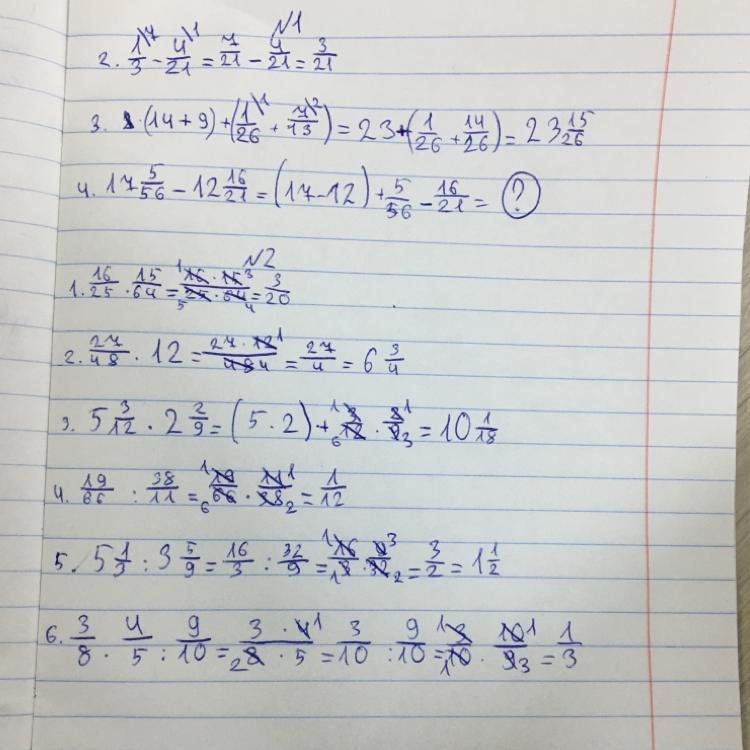 №1
2. 1/3\7 - 4/21\1 = 7/21 - 4/21 = 3/21
3. (14 + 9) + (1/26\1 + 7/13\2) = 23 + (1/26 + 14/26) = 23 15/26
4. 17 5/56 - 12 16/21 = (17 - 12) + 5/56 - 16/21 = ?
№2
1. 16/25 · 15/64 = 1 16 · 15 3 / 5 25 · 64 4 = 3/20
2. 27/48 · 12 = 27 · 12 1 / 48 4 = 27/4 = 6 3/4
3. 5 3/12 · 2 2/9 = (5 · 2) + 1 3 / 6 12 · 2 1 / 9 3 = 10 1/18
4. 19/66 : 38/11 = 1 19 / 6 66 · 11 1 / 38 2 = 1/12
5. 5 1/3 : 3 5/9 = 16/3 : 32/9 = 1 16 / 1 3 · 9 3 / 32 2 = 3/2 = 1 1/2
6. 3/8 · 4/5 : 9/10 = 3 · 4 1 / 2 8 · 5 = 3/10 : 9/10 = 1 3 / 1 10 · 10 1 / 9 3 = 1/3